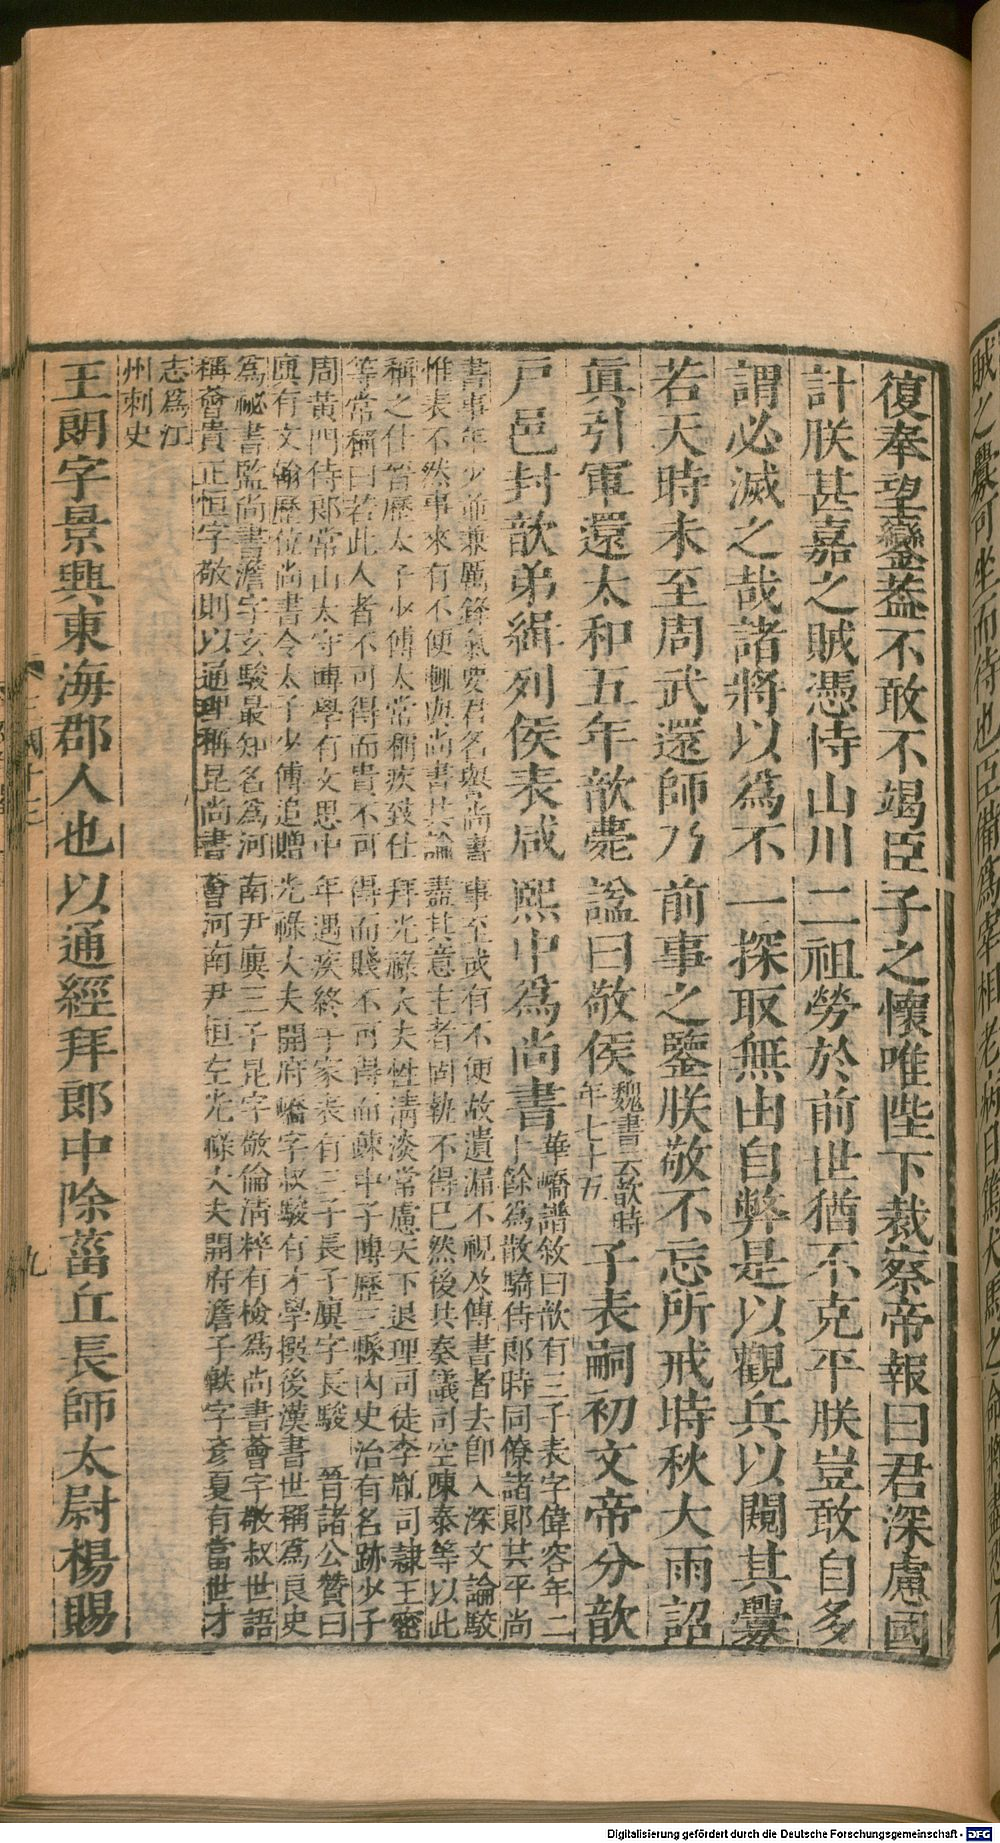 賊之釁可坐而待也臣備爲宰相老病日篤犬馬之命將盡恐不
復奉望鑾蓋不敢不竭臣子之懷唯陛下裁察帝報曰君深慮國
計朕甚嘉之賊憑恃山川二祖勞於前世猶不克平朕豈敢自多
謂必滅之哉諸將以爲不一探取無由自弊是以觀兵以闚其釁
若天時未至周武還師乃前事之鑒朕敬不忘所戒時秋大雨詔
眞引軍還太和五年歆薨諡曰敬侯魏書云歆時年七十五子表嗣初文帝分歆
戶邑封歆弟緝列侯表咸熙中爲尚書華嶠譜敘曰歆有三子表字偉容年二
十餘爲散騎侍郎時同僚諸郎共平尚
書事年少並兼厲鋒氣要君名譽尚書事至或有不便故遺漏不視及傳書者去即入深文論駮
惟表不然事來有不便輒與尚書共論盡其意主者固執不得已然後共奏議司空陳泰等以此
稱之仕晉歷太子少傅太常稱疾致仕拜光祿大夫性清淡常慮天下退理司徒李胤司隸王密
等常稱曰若此人者不可得而貴不可得而賤不可得而疎中子博歷三縣內史治有名跡少子
周黃門侍郎常山太守博學有文思中年遇疾終于家表有三子長子廙字長駿 晉諸公贊曰
廙有文翰歷位尚書令太子少傅追贈光祿大夫開府嶠字叔駿有才學撰後漢書世稱爲良史
爲祕書監尚書澹字玄駿最知名爲河南尹廙三子昆字敬倫清粹有檢爲尚書薈字敬叔世語
稱薈貴正恒字敬則以通理稱昆尚書薈河南尹恒左光祿大夫開府澹子軼字彥夏有當世才
志爲江
州刺史
王朗字景興東海郡人也以通經拜郎中除菑丘長師太尉楊賜
三國十三
九
Digitalisierung gefördert durch die Deutsche Forschungsgemeinschaft - DFG